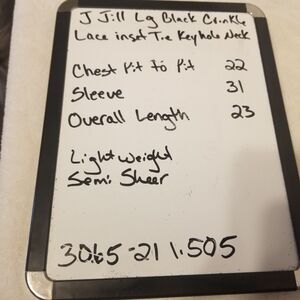 J Jill Lg Black Crinkle
Lace inset Tie Keyhole Neck
Chest Pit to Pit 22
Sleeve 31
Overall Length 23
Light Weight
Semi Sheer
3065-21 1.505